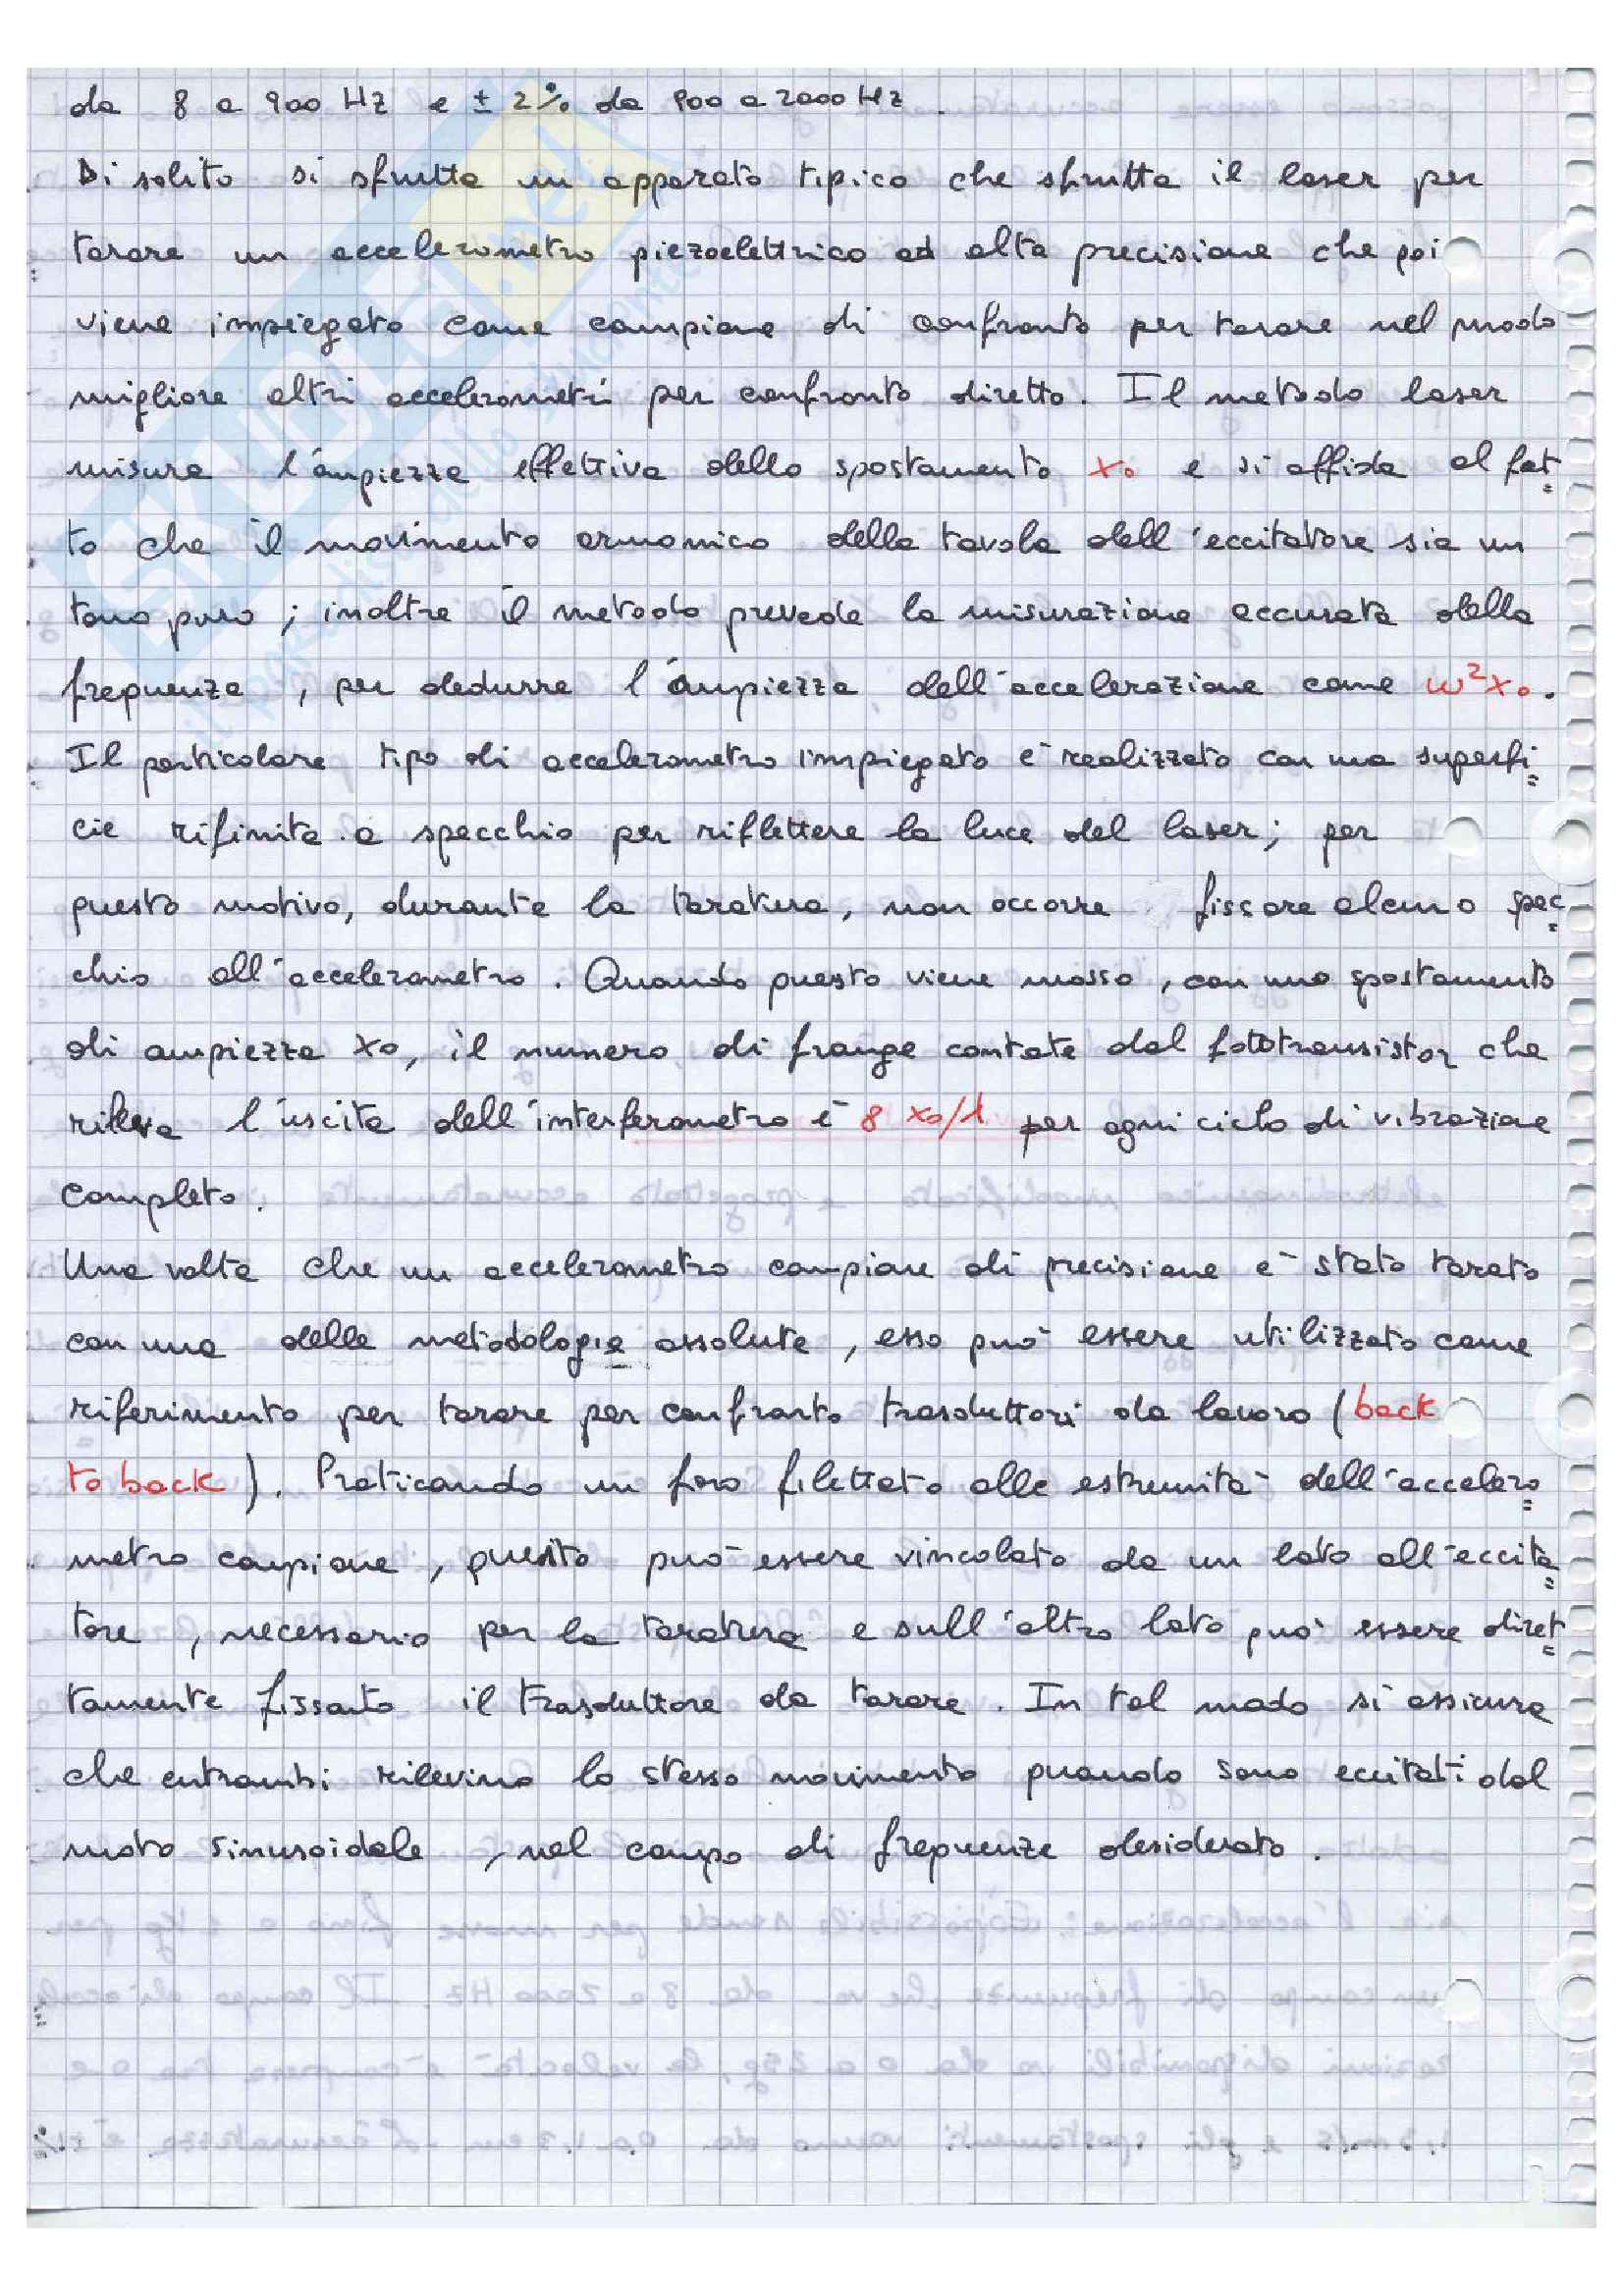 da 8 a 900 Hz e ± 2% da 900 a 2000 Hz.
Di solito si sfrutta un apparato tipico che sfrutta il laser per
tarare un accelerometro piezoelettrico ad alta precisione che poi
viene impiegato come campione di confronto per tarare nel modo
migliore altri accelerometri per confronto diretto. Il metodo laser
misura l'ampiezza effettiva dello spostamento x₀ e si affida al fat
to che il movimento armonico della tavola dell'eccitatore sia un
tono puro ; inoltre il metodo prevede la misurazione accurata della
frequenza , per dedurre l'ampiezza dell'accelerazione come ω²x₀.
Il particolare tipo di accelerometro impiegato è realizzato con una superfi
cie rifinita a specchio per riflettere la luce del laser; per
questo motivo, durante la taratura, non occorre fissare alcuno spec
chio all'accelerometro. Quando questo viene mosso, con uno spostamento
di ampiezza x₀, il numero di frange contate dal fototransistor che
rileva l'uscita dell'interferometro è 8 x₀/λ per ogni ciclo di vibrazione
completo.
Una volta che un accelerometro campione di precisione è stato tarato
con una delle metodologie assolute, esso può essere utilizzato come
riferimento per tarare per confronto trasduttori da lavoro (back
to back). Praticando un foro filettato alle estremità dell'accelero
metro campione, questo può essere vincolato da un lato all'eccita
tore, necessario per la taratura e sull'altro lato può essere diret
tamente fissato il trasduttore da tarare. In tal modo si assicura
che entrambi rilevino lo stesso movimento quando sono eccitati dal
moto sinusoidale, nel campo di frequenze desiderato.